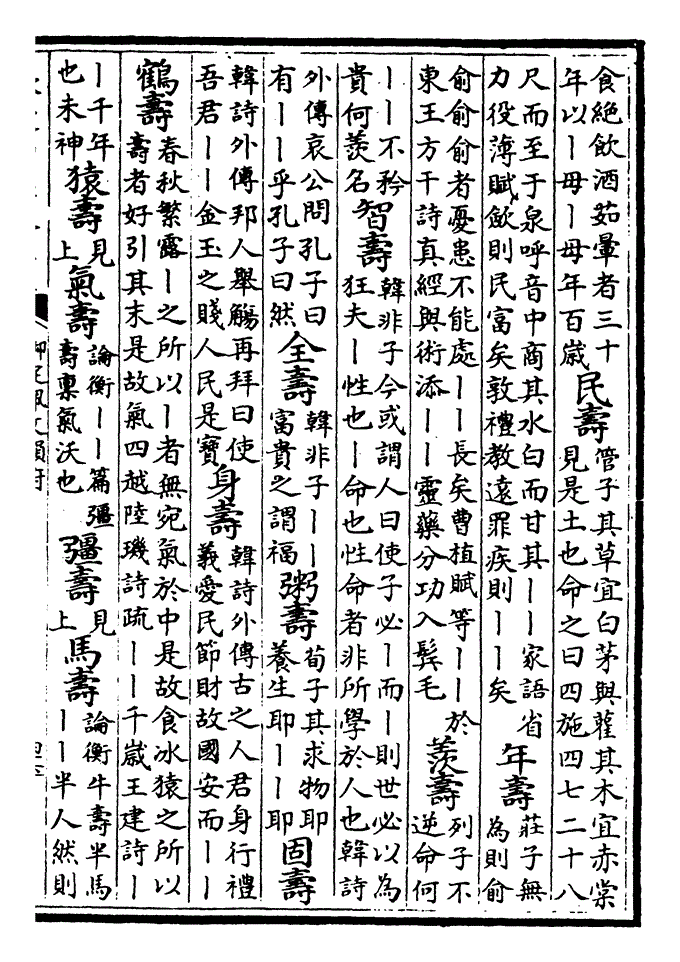 食絶飲酒茹葷者三十
年以丨母丨母年百歲
民壽
管子其草宜白茅與雚其木宜赤棠
見是土也命之曰四施四七二十八
尺而至于泉呼音中商其水白而甘其丨丨家語省
力役薄賦歛則民富矣敦禮教遠罪疾則丨丨矣
年壽
莊子無
為則俞
俞俞俞者憂患不能處丨丨長矣曹植賦等丨丨於
東王方干詩真經與術添丨丨靈藥分功入鬢毛
羨壽
列子不
逆命何
丨丨不矜
貴何羨名
智壽
韓非子今或謂人曰使子必丨而丨則世必以為
狂夫丨性也丨命也性命者非所學於人也韓詩
外傳哀公問孔子曰
有丨丨乎孔子曰然
全壽
韓非子丨丨
富貴之謂福
粥壽
荀子其求物耶
養生耶丨丨耶
固壽
韓詩外傳邦人舉觴再拜曰使
吾君丨丨金玉之賤人民是寶
身壽
韓詩外傳古之人君身行禮
義愛民節財故國安而丨丨
鶴壽
春秋繁露丨之所以丨者無宛氣於中是故食冰猿之所以
壽者好引其末是故氣四越陸璣詩疏丨丨千歲王建詩丨
丨千年
也未神
猿壽
見
上
氣壽
論衡丨丨篇彊
壽禀氣沃也
彊壽
見
上
馬壽
論衡牛壽半馬
丨丨半人然則